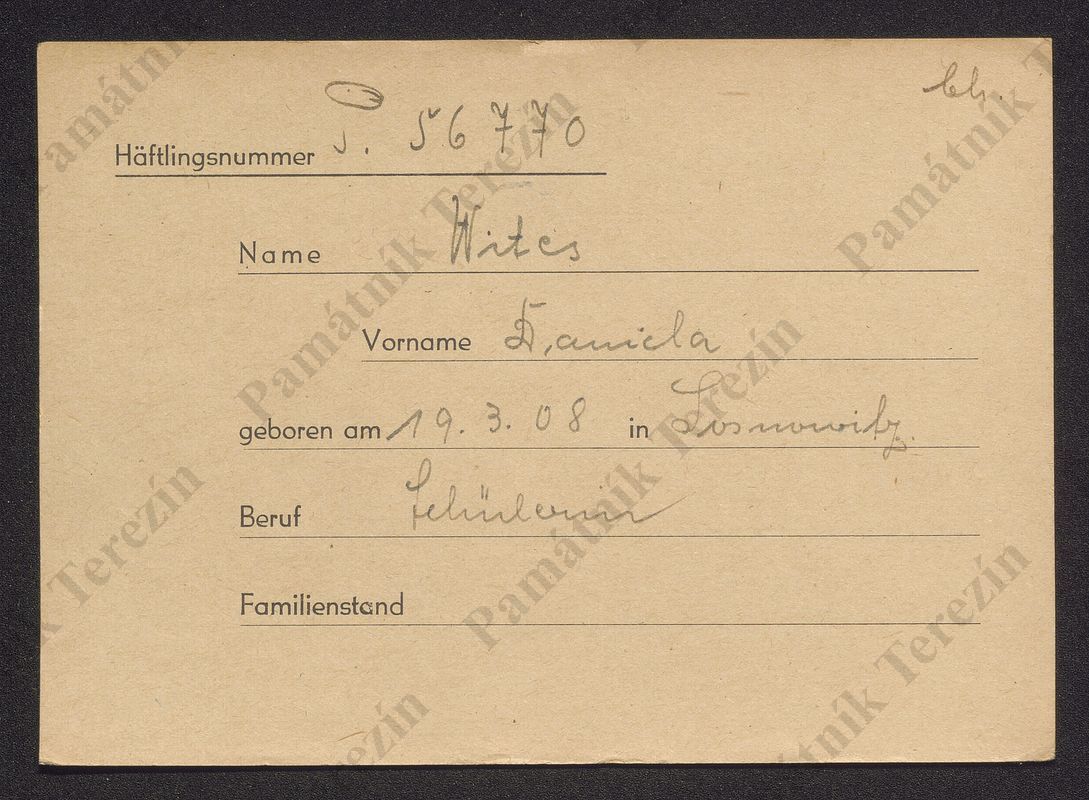 Häftlingsnummer J. 56770
Name Wites
Vorname Daniela
geboren am 19. 3. 08 in Sosnowitz
Beruf Schülerin
Familienstand
Památník Terezín